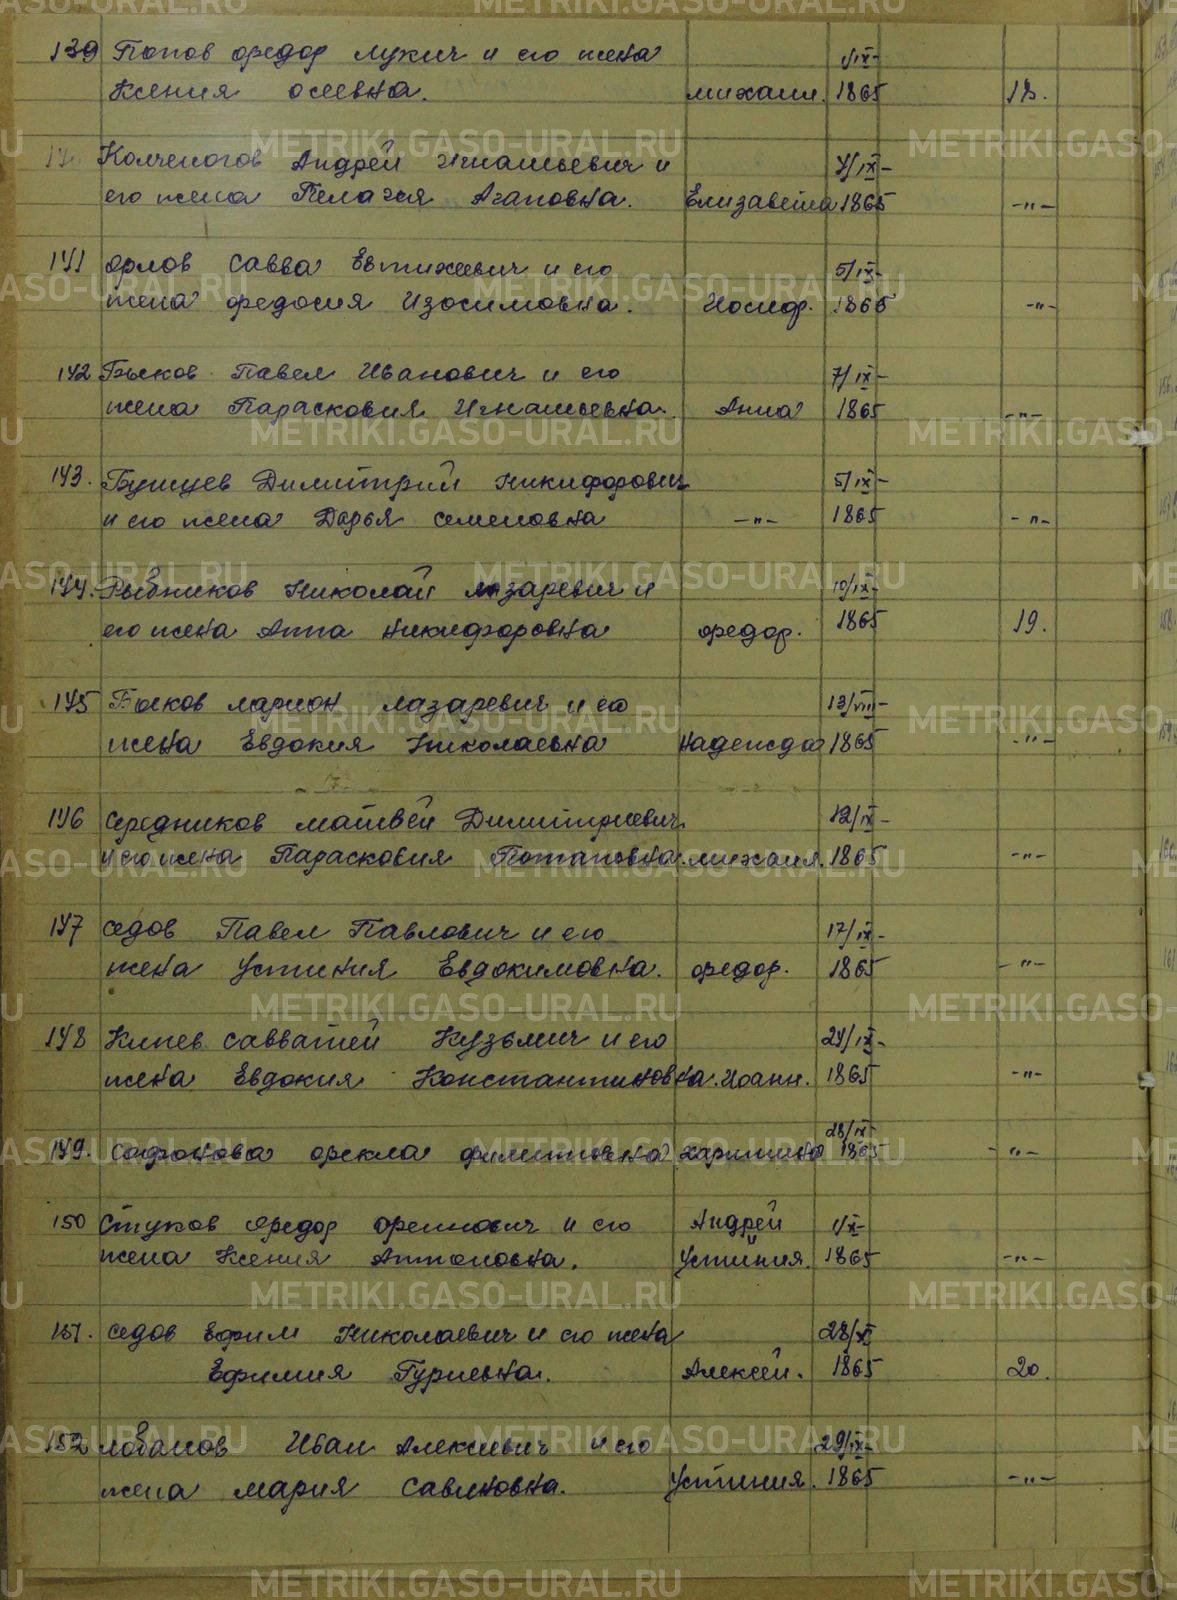 139 Попов Федор Лукич и его жена 1/IX-
Ксения Осиевна. Михаил. 1865 18.
Колченогов Андрей Игнатьевич и 4/IX-
его жена Пелагея Агаповна. Елизавета 1865 -"-
141 Орлов Савва Евтихеевич и его 5/IX-
жена Федосия Изосимовна. Иосиф. 1865 -"-
142 Быков Павел Иванович и его 7/IX-
жена Парасковия Игнатьевна. Анна 1865 -"-
143. Бунцев Димитрий Никифорович 5/IX-
и его жена Дарья Семеновна -"- 1865 -"-
144. Рыбников Николай Лазаревич и 10/IX-
его жена Анна Никифоровна Федор. 1865 19.
145 Быков Ларион Лазаревич и его 13/VIII-
жена Евдокия Николаевна Надежда 1865 -"-
146 Середников Матвей Димитриевич 12/IX-
и его жена Парасковия Потаповна. Михаил. 1865 -"-
147 Седов Павел Павлович и его 17/IX-
жена Устиния Евдокимовна. Федор. 1865 -"-
148 Савватей Кузьмич и его 24/IX-
жена Евдокия Константиновна. Иоанн. 1865 -"-
28/IX-
149. Сафонова Фекла Филиповна Харитина 1865 -"-
150 Стуков Федор и его Андрей 1/X-
жена Ксения Антоновна. Устиния. 1865 -"-
151. Седов Ефим Николаевич и его жена 28/IX
Ефимия Гурьевна. Алексей. 1865 20.
152 Лобанов Иван Алексиевич и его 29/IX-
жена Мария Савиновна. Устиния. 1865 -"-
METRIKI.GASO-URAL.RU